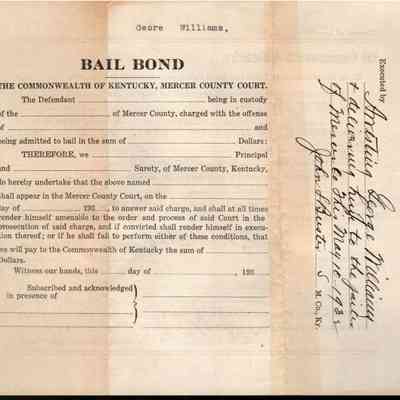 Geore Williams,
BAIL BOND
THE COMMONWEALTH OF KENTUCKY, MERCER COUNTY COURT.
The Defendant being in custody
of the of Mercer County, charged with the offense
of and
being admitted to bail in the sum of Dollars:
THEREFORE, we Principal
and Surety, of Mercer County, Kentucky,
do hereby undertake that the above named
shall appear in the Mercer County Court, on the
day of 193 to answer said charge, and shall at all times
render himself amenable to the order and process of said Court in the
prosecution of said charge, and if convicted shall render himself in execu-
tion thereof; or if he shall fail to perform either of these conditions, that
we will pay to the Commonwealth of Kentucky the sum of
Dollars.
Witness our hands, this day of 193
Subscribed and acknowledged
in presence of
Executed by
Arresting George Williams
& delivering him to the jailer
of Mercer Co this May 10 1932
John
S M. Co. Ky.